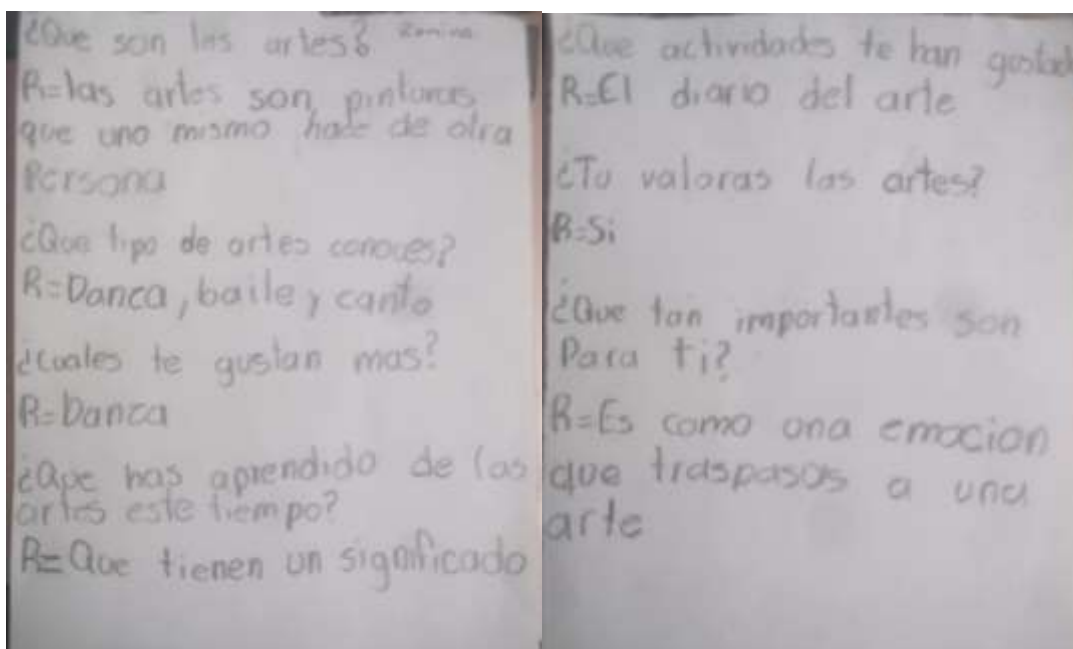 ¿Que son las artes?
R=las artes son pinturas
que uno mismo hace de otra
Persona
¿Que tipo de artes conoces?
R=Danca, baile y canto
¿Cuales te gustan mas?
R=Danza
¿Que has aprendido de las
artes este tiempo?
R=Que tienen un significado
¿Que actividades te han gustado
R=El diario del arte
¿Tu valoras las artes?
R=Si
¿Que tan importantes son
Para ti?
R=Es como una emocion
que traspasas a una
arte